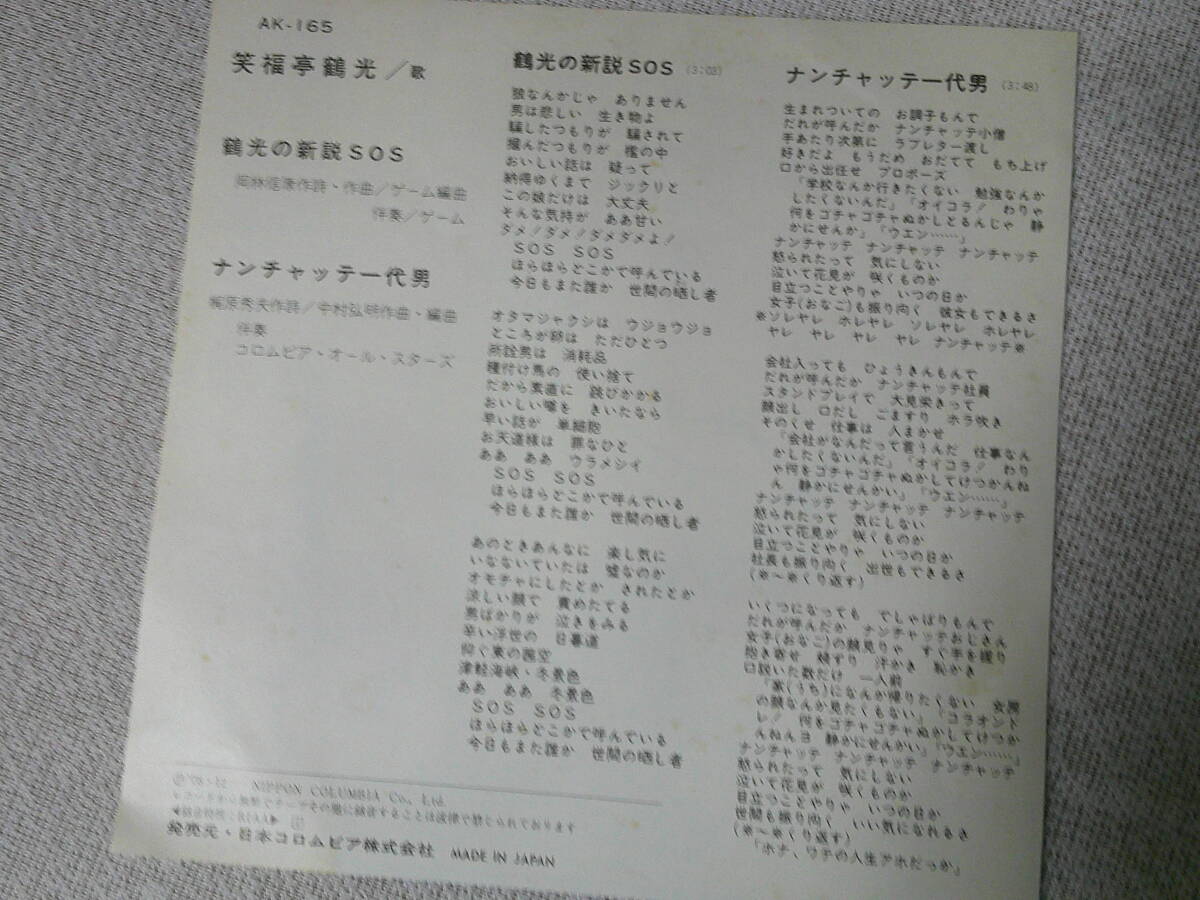 AK-165
笑福亭鶴光／歌
鶴光の新説SOS
岡林信康作詩・作曲／ゲーム編曲
伴奏／ゲーム
ナンチャッテ一代男
梶原秀夫作詩／中村弘明作曲・編曲
伴奏
コロムビア・オール・スターズ
鶴光の新説SOS (3:03)
狼なんかじゃ ありません
男は悲しい 生き物よ
騙したつもりが 騙されて
掴んだつもりが 檻の中
おいしい話は 疑って
納得ゆくまで ジックリと
この娘だけは 大丈夫
そんな気持が ああ甘い
ダメ！ダメ！ダメダメよ！
SOS SOS
ほらほらどこかで呼んでいる
今日もまた誰か 世間の晒し者
オタマジャクシは ウジョウジョ
ところが卵は ただひとつ
所詮男は 消耗品
種付け馬の 使い捨て
だから素直に 跳びかかる
おいしい噂を きいたなら
早い話が 単細胞
お天道様は 罪なひと
ああ ああ ウラメシイ
SOS SOS
ほらほらどこかで呼んでいる
今日もまた誰か 世間の晒し者
あのときあんなに 楽し気に
いなないていたは 嘘なのか
オモチャにしたとか されたとか
涼しい顔で 責めたてる
男ばかりが 泣きをみる
辛い浮世の 日暮道
仰ぐ東の茜空
津軽海峡・冬景色
ああ ああ 冬景色
SOS SOS
ほらほらどこかで呼んでいる
今日もまた誰か 世間の晒し者
ナンチャッテ一代男 (3:48)
生まれついての お調子もんで
だれが呼んだか ナンチャッテ小僧
手あたり次第に ラブレター渡し
好きだよ もうだめ おだてて もち上げ
口から出任せ プロポーズ
「学校なんか行きたくない 勉強なんか
したくないんだ」「オイコラ！ わりゃ
何をゴチャゴチャぬかしとるんじゃ 静
かにせんか」「ウエン……」
ナンチャッテ ナンチャッテ ナンチャッテ
怒られたって 気にしない
泣いて花見が 咲くものか
目立つことやりゃ いつの日か
女子(おなご)も振り向く 彼女もできるさ
※ソレヤレ ホレヤレ ソレヤレ ホレヤレ
ヤレ ヤレ ヤレ ヤレ ナンチャッテ※
会社入っても ひょうきんもんで
だれが呼んだか ナンチャッテ社員
スタンドプレイで 大見栄きって
顔出し 口だし ごますり ホラ吹き
そのくせ 仕事は 人まかせ
「会社がなんだって言うんだ 仕事なん
かしたくないんだ」「オイコラ！ わり
ゃ何をゴチャゴチャぬかしてけつかんね
ん 静かにせんかい」「ウエン……」
ナンチャッテ ナンチャッテ ナンチャッテ
怒られたって 気にしない
泣いて花見が 咲くものか
目立つことやりゃ いつの日か
社長も振り向く 出世もできるさ
(※〜※くり返す)
いくつになっても でしゃばりもんで
だれが呼んだか ナンチャッテおじさん
女子(おなご)の顔見りゃ すぐ手を握り
抱き寄せ 頬ずり 汗かき 恥かき
口説いた数だけ 一人前
「家(うち)になんか帰りたくない 女房
の顔なんか見たくもない」「コラオンド
レ！ 何をゴチャゴチャぬかしてけつか
んねんヨ 静かにせんかい」「ウエン……」
ナンチャッテ ナンチャッテ ナンチャッテ
怒られたって 気にしない
泣いて花見が 咲くものか
目立つことやりゃ いつの日か
世間も振り向く いい気になれるさ
(※〜※くり返す)
「ホナ、ワテの人生アホだっか」
NIPPON COLUMBIA Co., Ltd.
レコードから無断でテープその他に録音することは法律で禁じられております
◀録音特性：RIAA▶
発売元・日本コロムビア株式会社 MADE IN JAPAN